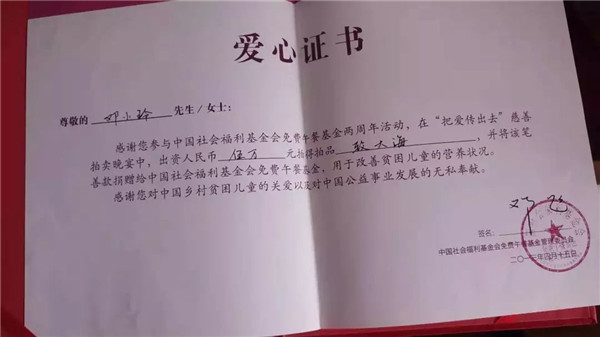 爱心证书
尊敬的 邓小玲 先生/女士:
感谢您参与中国社会福利基金会免费午餐基金两周年活动,在“把爱传出去”慈善
拍卖晚宴中,出资人民币 伍万 元拍得拍品 致大海 ,并将该笔
善款捐赠给中国社会福利基金会免费午餐基金,用于改善贫困儿童的营养状况。
感谢您对中国乡村贫困儿童的关爱以及对中国公益事业发展的无私奉献。
签名:
中国社会福利基金会免费午餐基金管理委员会
二〇一三年四月十五日